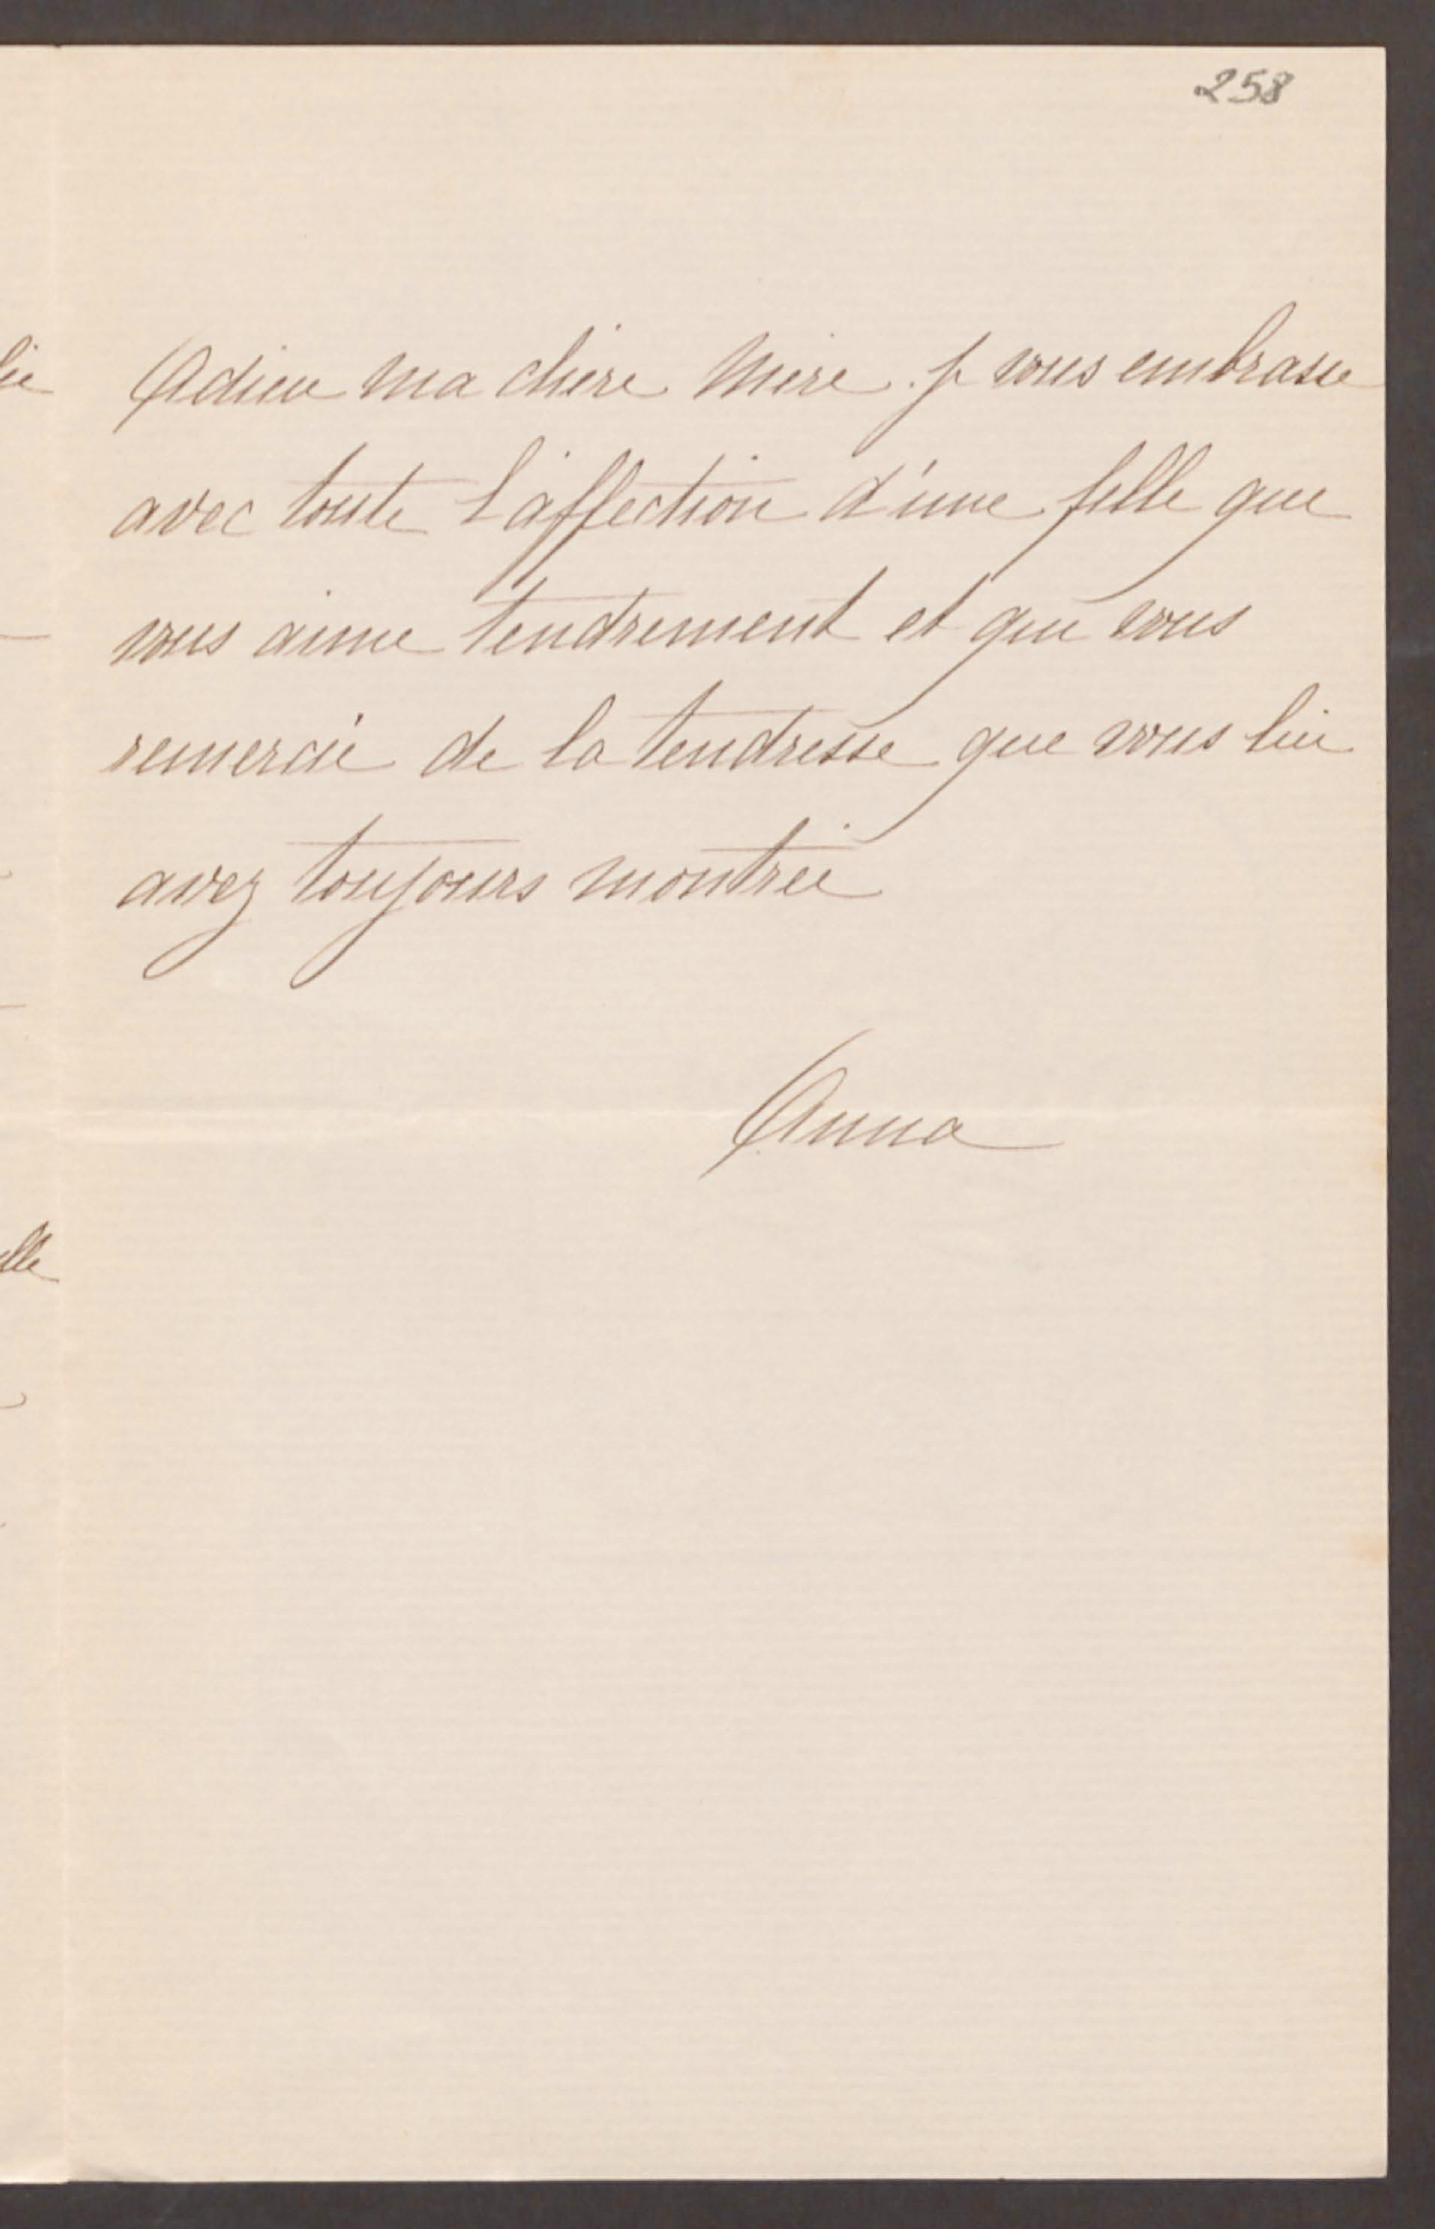 258
Adieu ma chère Mère. je vous embrasse
avec toute l'affection d'une fille qui
vous aime tendrement et qui vous
remercie de la tendresse que vous lui
avez toujours montrée
Anna